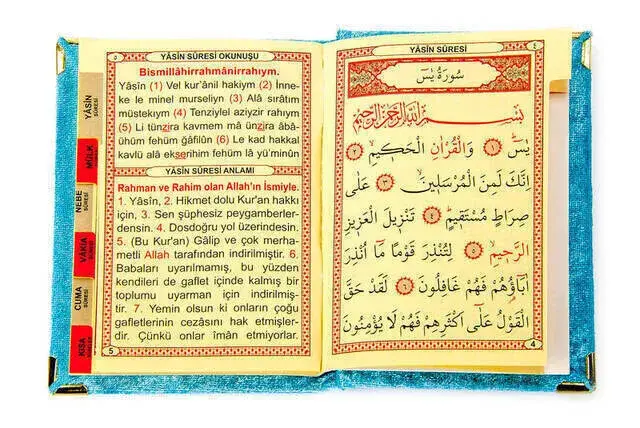 ٥
YÂSİN SÛRESİ OKUNUŞU
Bismillâhirrahmânirrahıym.
Yâsîn (1) Vel kur'ânil hakiym (2) İnne-
ke le minel murseliyn (3) Alâ sırâtım
müstekıym (4) Tenziylel aziyzir rahıym
(5) Li tünzira kavmem mâ ünzira âbâ-
ühüm fehüm gâfilûn (6) Le kad hakkal
kavlü alâ ekserihim fehüm lâ yü'minûn
YÂSİN SÛRESİ ANLAMI
Rahman ve Rahim olan Allah'ın İsmiyle.
1. Yâsîn, 2. Hikmet dolu Kur'an hakkı
için, 3. Sen şüphesiz peygamberler-
densin. 4. Dosdoğru yol üzerindesin.
5. (Bu Kur'an) Gâlip ve çok merha-
metli Allah tarafından indirilmiştir. 6.
Babaları uyarılmamış, bu yüzden
kendileri de gaflet içinde kalmış bir
toplumu uyarman için indirilmiş-
tir. 7. Yemin olsun ki onların çoğu
gafletlerinin cezasını hak etmişler-
dir. Çünkü onlar îmân etmiyorlar.
5
YÂSİN
SÛRESİ
MÜLK
SÛRESİ
NEBE
SÛRESİ
VÂKIA
SÛRESİ
CUMA
SÛRESİ
KISA
SÛRELER
YÂSİN SÛRESİ
٤
سُورَةُ يٰسٓ
بِسْمِ اللّٰهِ الرَّحْمٰنِ الرَّحِيمِ
يٰسٓ ١ وَالْقُرْاٰنِ الْحَكِيمِ ٢
اِنَّكَ لَمِنَ الْمُرْسَلِينَ ٣ عَلٰى
صِرَاطٍ مُسْتَقِيمٍ ٤ تَنْزِيلَ الْعَزِيزِ
الرَّحِيمِ ٥ لِتُنْذِرَ قَوْمًا مَٓا اُنْذِرَ
اٰبَٓاؤُهُمْ فَهُمْ غَافِلُونَ ٦ لَقَدْ حَقَّ
الْقَوْلُ عَلٰٓى اَكْثَرِهِمْ فَهُمْ لَا يُؤْمِنُونَ
4